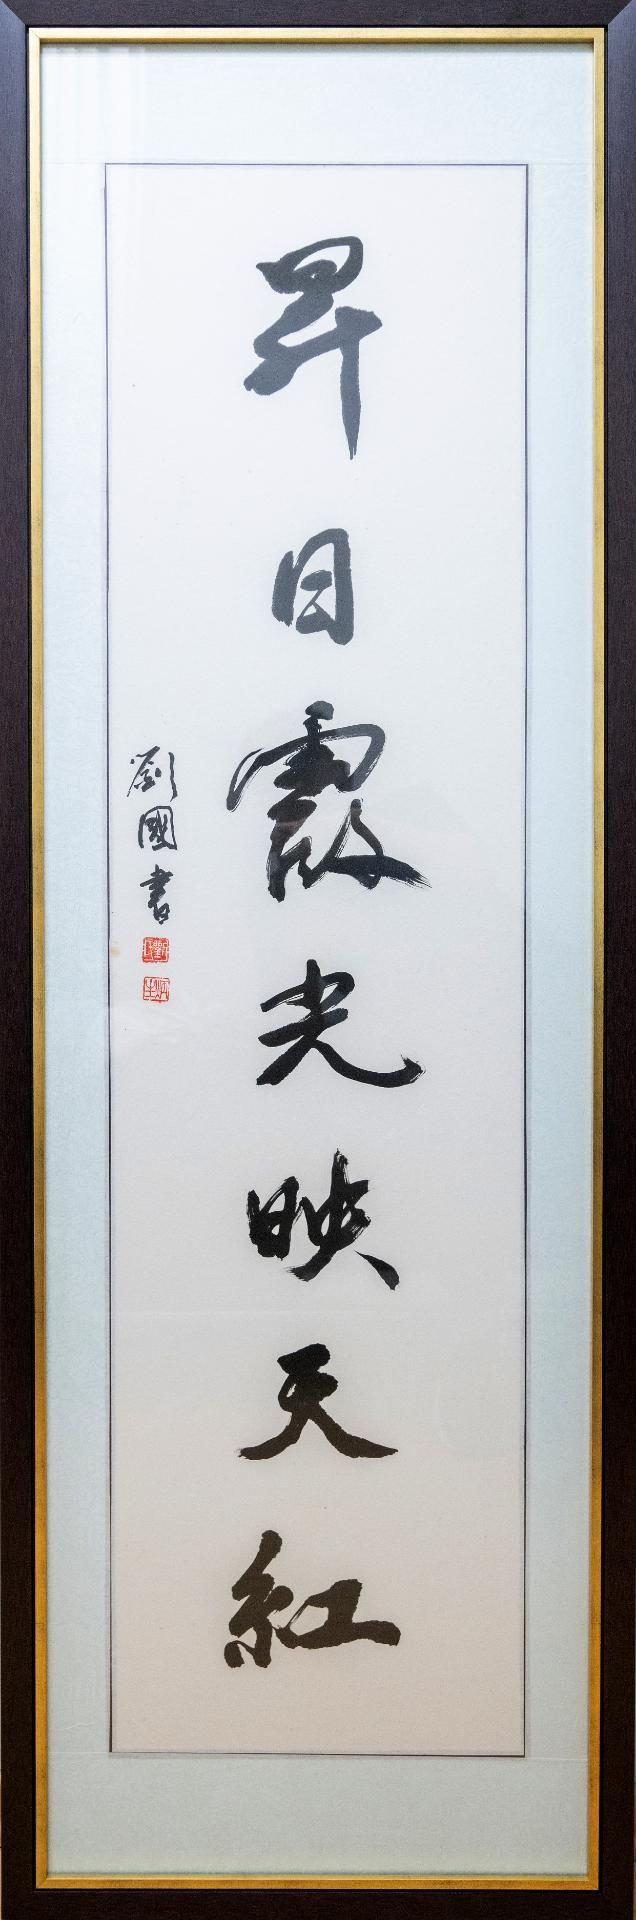 昇日霞光映天紅
劉國書